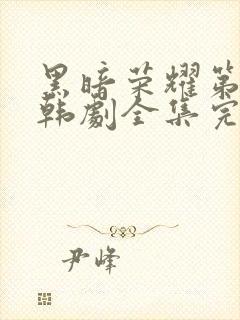 黑暗荣耀第
韩剧全集完
尹峰